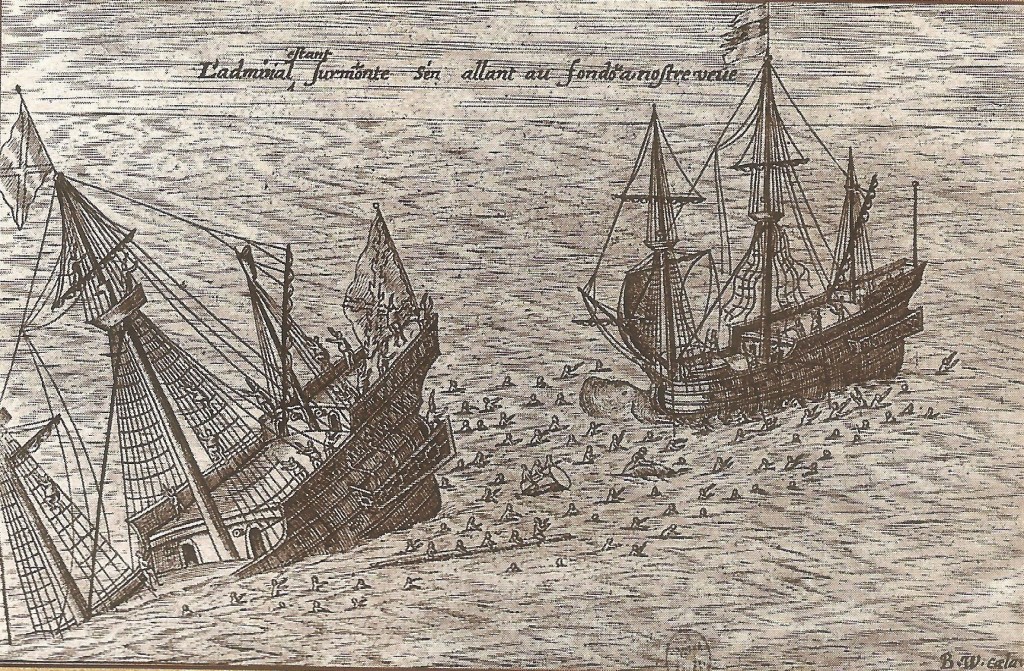 eſtant
L'admiral ſurmonte s'en allant au fond a noſtre veüe
B. W.